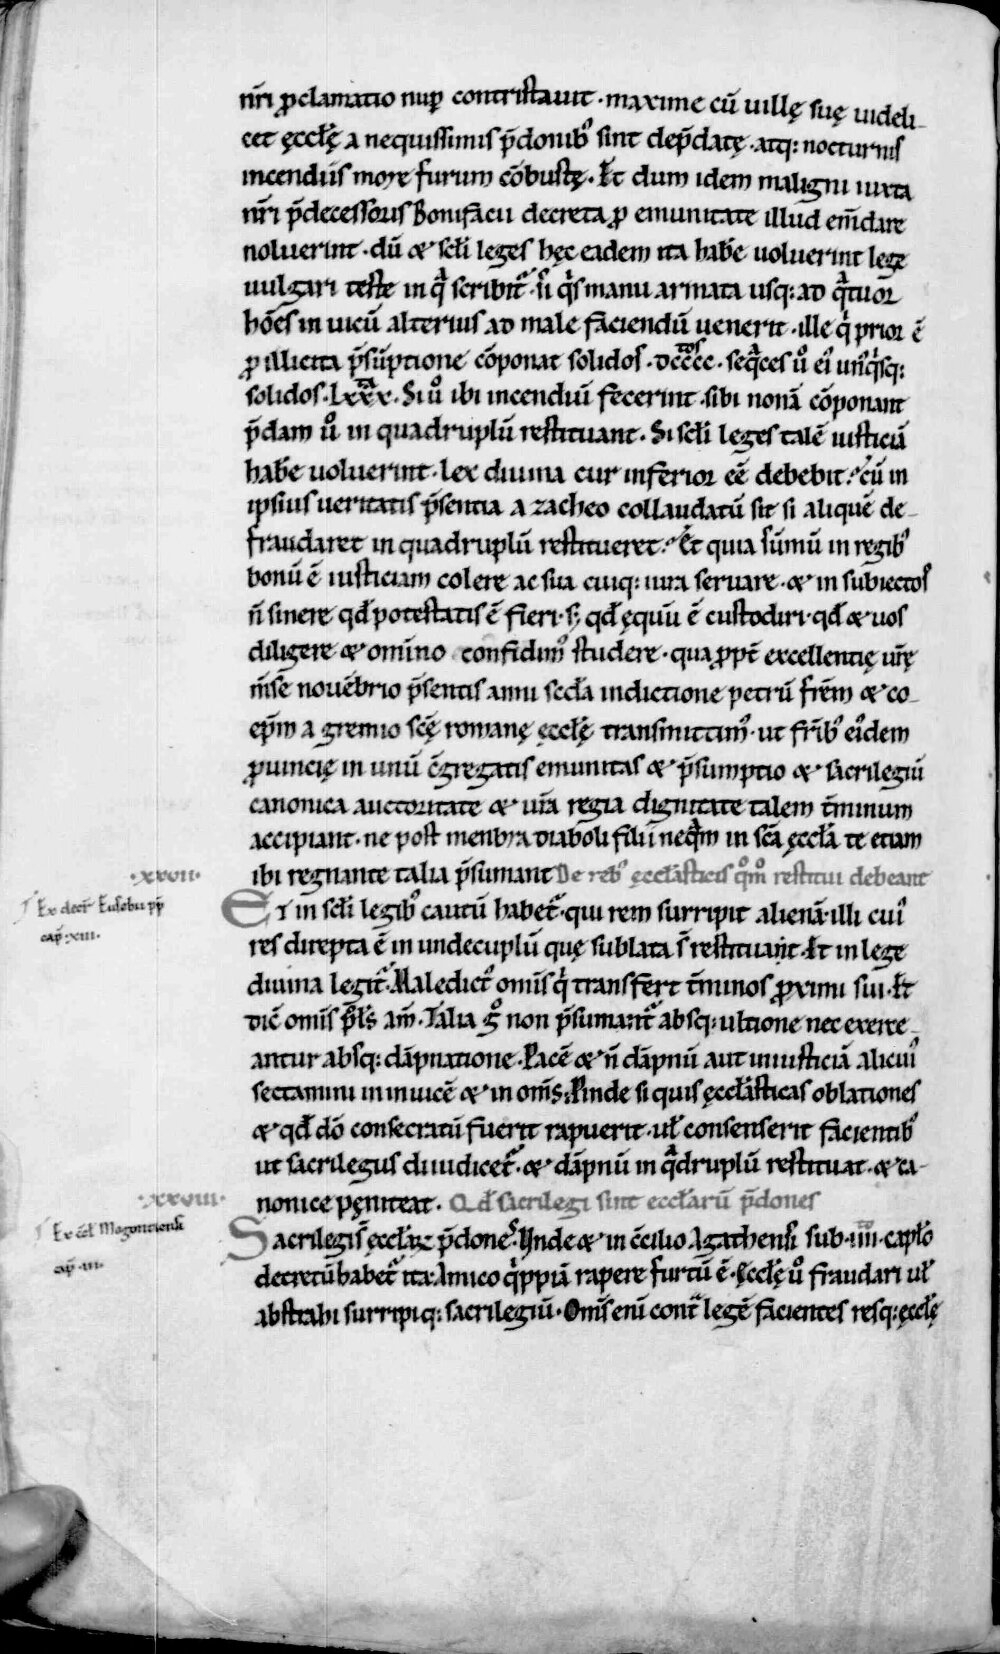 nr̄i ꝓclamatio nuꝑ contristauit · maxime cū uillę suę uideli-
cet ęccłę a nequissimis p̄donib᷒ sint dep̄datę · atq: nocturnis
incendiis more furum cōbustę · Et dum idem maligni iuxta
nr̄i p̄decessoris Bonifacii decreta ꝓ emunitate illud em̄dare
noluerint · dū & scłi leges hęc eadem ita habēe uoluerint lege
uulgari teste in qͣ scribit᷑ · s̄i qͥs manu armata usq: ad qͣtuor
hōēs in uicū alterius ad male faciendū uenerit · ille qͥ prior ē
ꝓ illicita p̄sūptione cōponat solidos · dcccc^tos · seqͣces u᷒ ei᷒ un᷒qͥsq:
solidos · Lxxx^ta · Si u᷒ ibi incendiū fecerint · sibi nonā cōponant
p̄dam u᷒ in quadruplū restituant · Si scłi leges talē iusticiā
habēe uoluerint · lex diuina cur inferior eē debebit? cū in
ipsius ueritatis p̄sentia a zacheo collaudatū sit si aliquē de-
fraudaret in quadruplū restitueret? Et quia sūmū in regib᷒
bonū ē iusticiam colere ac sua cuiq: iura seruare · & in subiectos
n̄ sinere qd̄ potestatis ē fieri · s; qd̄ ęquū ē custodiri · qd̄ & uos
diligere & omīno confidim᷒ studere · qua ꝓpt̄ excellentię ur̄ę
m̄se nouēbrio p̄sentis anni scd̄a indictione petrū fr̄em & co-
ep̄m a gremio scę romanę ęccłę transmittim᷒ · ut fr̄ib᷒ ei᷒dem
ꝓuincię in unū c̄gregatis emunitas & p̄sumptio & sacrilegiū
canonica auctoritate & ur̄a regia dignitate talem t̄minum
accipiant · ne post menbra diaboli filiū neqͣm in sc̄a ęccła te etiam
ibi regnante talia p̄sumant De reb᷒ ęccłasticis qͦm᷒ restitui debeant
·xxvii·
Ex decr̄ Eusebii pp̄
cap̄ · xiii ·
Et in scłi legib᷒ cautū habet᷑ · qui rem surripit alienā · illi cui᷒
res direpta ē in undecuplū quę sublata s̄ restituant · Et in lege
diuina legit᷑ · Maledict᷒ omīs qͥ transfert t̄minos ꝓximi sui · Et
dic̄ omīs p̄łs am̄ · Talia gͦ non p̄sumant᷑ absq: ultione nec exerce-
antur absq: dāpnatione · Pacē & n̄ dāpnū aut iniusticiā alicui᷒
sectamini in inuicē & in om̄s · Pinde si quis ęccłasticas oblationes
& qd̄ dō consecratū fuerit rapuerit · uł consenserit facientib᷒
ut sacrilegus diiudicet᷑ · & dāpnū in qͣdruplū restituat · & ca-
nonice pęniteat · Qd̄ sacrilegi sint eccłarū p̄dones
·xxviii·
Ex c̄cł Magontiensi
cap̄ · iii ·
Sacrilegi s̄ ęccłaꝝ p̄dones · Unde & in c̄cilio Agathensi sub · iiii^to · capłō
decretū habet᷑ ita · Amico qͥppiā rapere furtū ē · Ęccłę u᷒ fraudari uł
abstrahi surripiq: sacrilegiū · Om̄s eni contͣ legē facientes resq: ęccłę